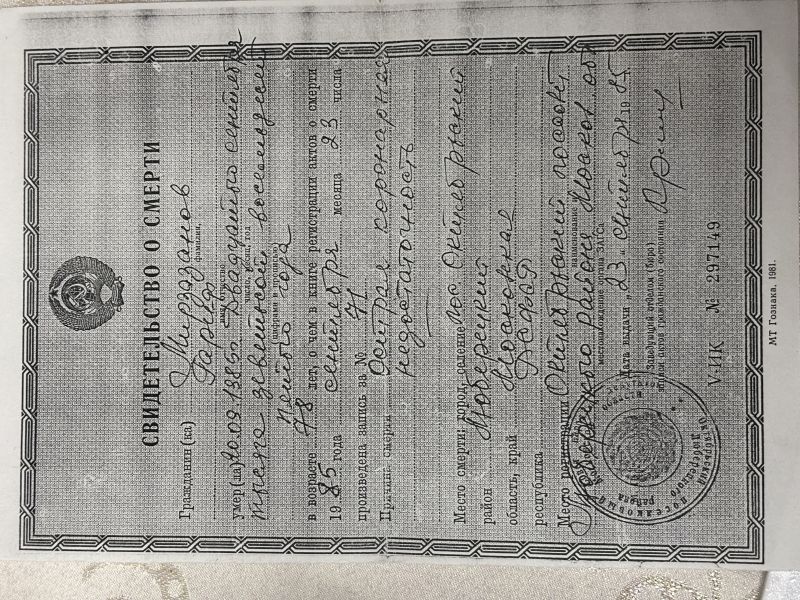 СВИДЕТЕЛЬСТВО О СМЕРТИ
Гражданин (ка) Мирзаданов
фамилия,
Гариф
имя, отчество
умер(ла) 20.09.1985г. Двадцатого сентября
число, месяц, год
тысяча девятьсот восемьдесят
(цифрами и прописью)
пятого года
в возрасте 78 лет, о чем в книге регистрации актов о смерти
19 85 года сентября месяца 23 числа
произведена запись за № 71
Причина смерти Острая коронарная
недостаточность
Место смерти: город, селение пос. Октябрьский
район Люберецкий
область, край Московская
республика РСФСР
Место регистрации Октябрьский поссовет
наименование и
местонахождение органа ЗАГСа
Люберецкого района Москов. обл
Дата выдачи „ 23 “ сентября 19 85 г.
Заведующий отделом (бюро)
записи актов гражданского состояния
V-ИК № 297149
МТ Гознака. 1981.